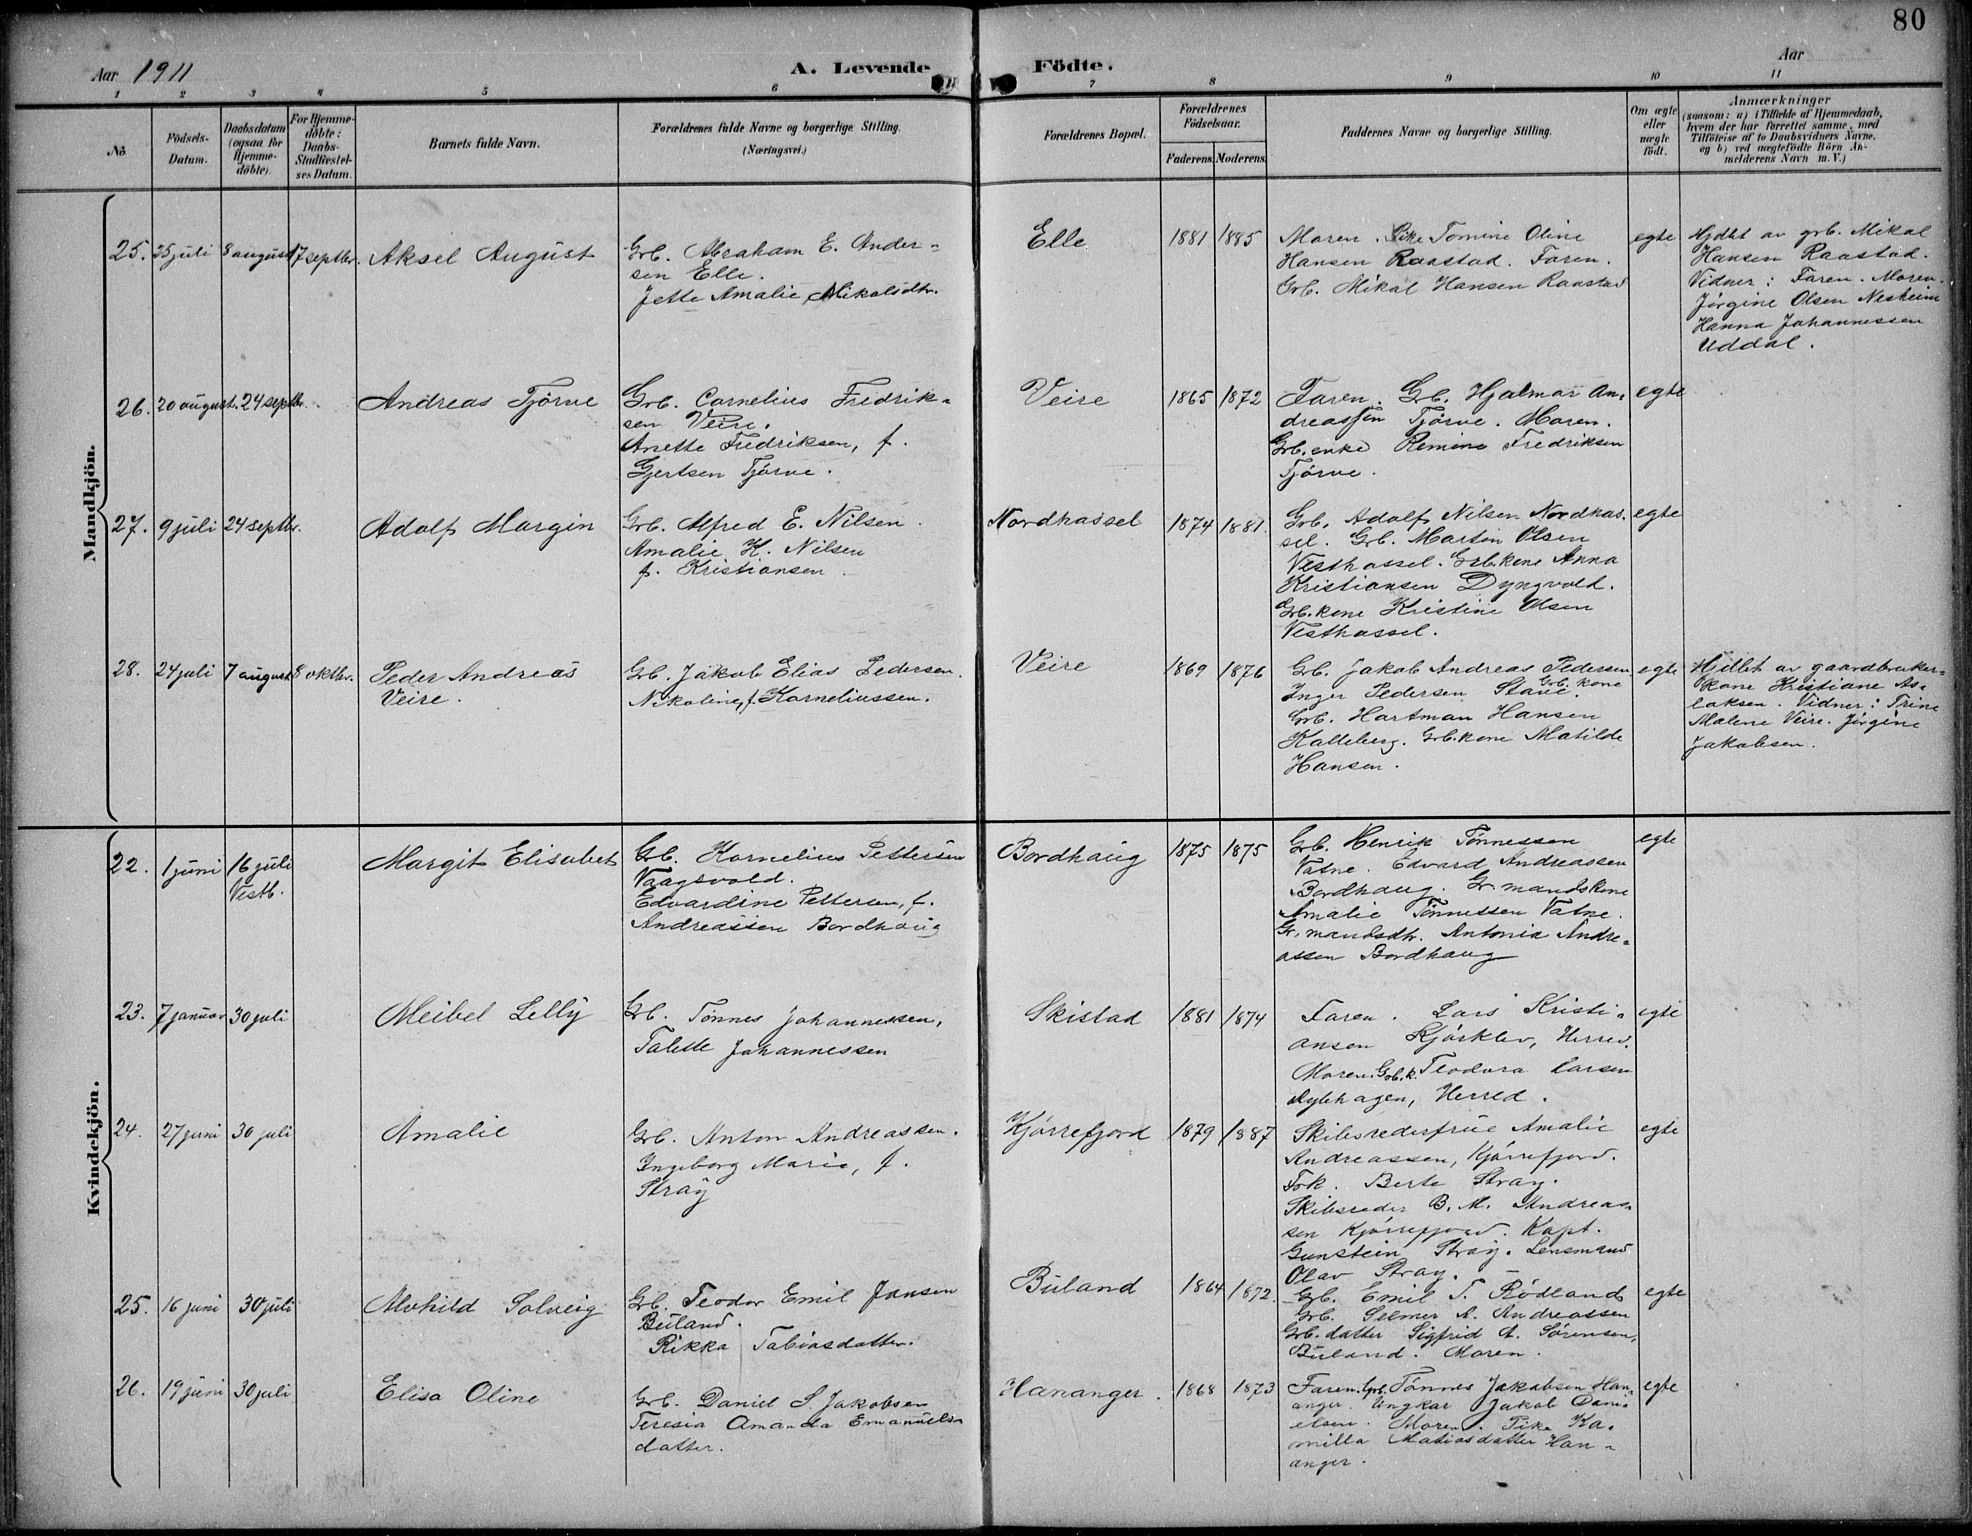 80
Aar 1911
A. Levende Födte.
Aar
1 2 3 4 5 6 7 8 9 10 11
No
Födsels-
Datum.
Daabsdatum
(ogsaa for
Hjemme-
döbte).
For Hjemme-
döbte:
Daabs-
Stadfæstel-
ses Datum.
Barnets fulde Navn.
Forældrenes fulde Navne og borgerlige Stilling.
(Næringsvei.)
Forældrenes Bopæl.
Forældrenes
Födselsaar.
Faderens. Moderens.
Faddernes Navne og borgerlige Stilling.
Om ægte
eller
uægte
födt.
Anmærkninger
(saasom: a) i Tilfælde af Hjemmedaab,
hvem der har forrettet samme, med
Tilföielse af to Daabsvidners Navne,
og b) ved uægtefödte Börn An-
melderens Navn m. V.)
Mandkjön.
25. 25 juli 8 august 17 septbr. Aksel August
Grb. Abraham E. Ander-
sen Elle.
Jette Amalie Mikalsdtr.
Elle 1881 1885
Moren. Pike Tomine Oline
Hansen Raastad. Faren.
Grb. Mikal Hansen Raastad
egte
Hjdbt av grb. Mikal
Hansen Raastad.
Vidner: Faren. Moren.
Jørgine Olsen Nesheim
Hanna Johannessen
Uddal.
26. 20 august. 24 septbr. Andreas Tjørve
Grb. Cornelius Fredrik-
sen Veire.
Anette Fredriksen, f.
Gjertsen Tjørve.
Veire 1865 1872
Faren. Grb. Hjalmar An-
dreassen Tjørve. Moren.
Grb. enke Remine Fredriksen
Tjørve.
egte
27. 9 juli 24 septbr. Adolf Margin
Grb. Alfred E. Nilsen.
Amalie K. Nilsen
f. Kristiansen.
Nordhassel 1874 1881.
Grb. Adolf Nilsen Nordhas-
sel. Grb. Marton Olsen
Vesthassel. Grb.kone Anna
Kristiansen Dyngvold.
Grb.kone Kristine Olsen
Vesthassel.
egte
28. 24 juli 7 august 8 oktbr. Peder Andreas
Veire.
Grb. Jakob Elias Pedersen.
Nikoline, f. Korneliussen.
Veire 1869 1876
Grb. Jakob Andreas Pedersen
Grb. kone
Inger Pedersen Stave.
Grb. Hartman Hansen
Kalleberg. Grb.kone Matilde
Hansen.
egte
Hjdbt av gaardbruker-
kone Kristiane As-
laksen. Vidner: Trine
Malene Veire. Jørgine
Jakobsen.
Kvindekjön.
22. 1 juni 16 juli
Vestb.
Margit Elisabet
Grb. Kornelius Pettersen
Vaagsvold.
Edvardine Pettersen, f.
Andreassen Bordhaug
Bordhaug 1875 1875
Grb. Henrik Tønnessen
Vatne. Edvard Andreassen
Bordhaug. Gr. mandskone
Amalie Tønnessen Vatne.
Gr. mandsdtr. Antonia Andre-
assen Bordhaug
egte
23. 7 januar 30 juli Meibel Lelly
Grb. Tønnes Johannessen,
Talette Johannessen
Skistad 1881 1874
Faren. Lars Kristi-
ansen Kjørklev, Herred.
Moren. Grb.k. Teodora Larsen
Herred.
egte
24. 27 juni 30 juli Amalie
Grb. Anton Andreassen.
Ingeborg Marie, f.
Stray
Kjørrefjord 1879 1887
Skibsrederfrue Amalie
Andreassen, Kjørrefjord.
Frk. Berte Stray.
Skibsreder B. M. Andreas-
sen Kjørrefjord. Kapt.
Gunstein Stray. Lensmand
Olav Stray.
egte
25. 16 juni 30 juli Alvhild Solveig
Grb. Teodor Emil Jansen
Büland.
Rikka Tobiasdatter.
Büland 1864 1872.
Grb. Emil T. Rødland
Grb. Selmer A. Andreassen
Grb. datter Sigfrid A. Sørensen,
Büland. Moren.
egte
26. 19 juni 30 juli Elisa Oline
Grb. Daniel S. Jakobsen
Teresia Amanda Emanuels-
datter.
Hananger. 1868 1873
Faren. Grb. Tønnes Jakobsen Han-
anger. Ungkar Jakob Dani-
elsen. Moren. Pike Ka-
milla Matiasdatter Han-
anger.
egte